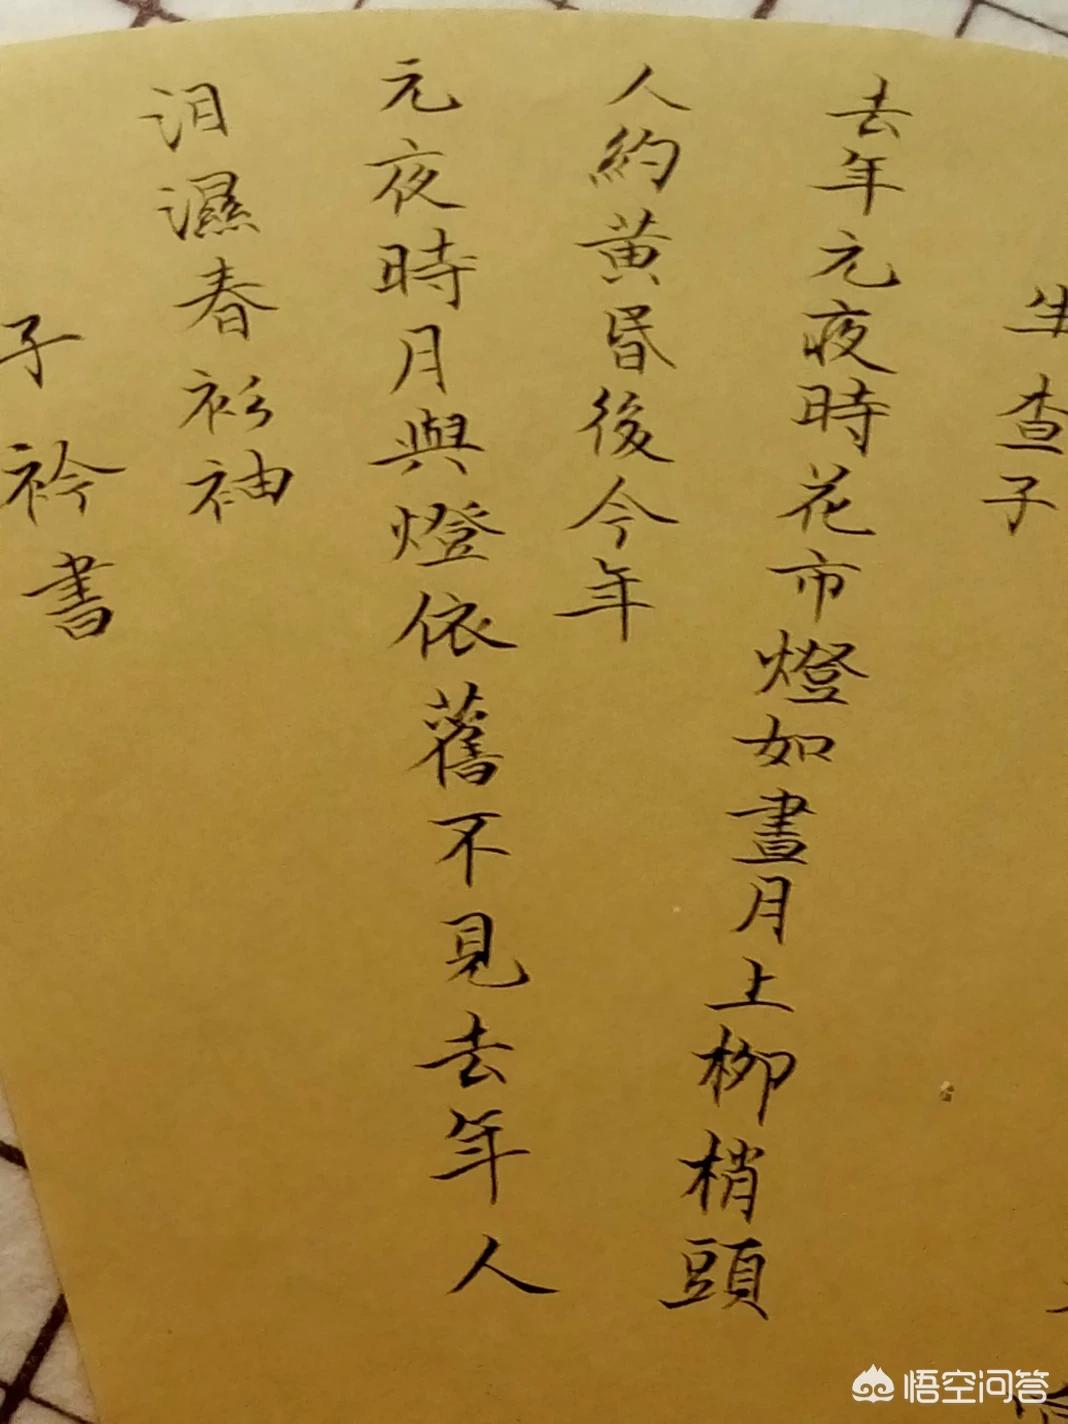 生查子
去年元夜時花市燈如晝月上柳梢頭
人約黄昏後今年
元夜時月與燈依舊不見去年人
泪濕春衫袖
子衿書
悟空问答